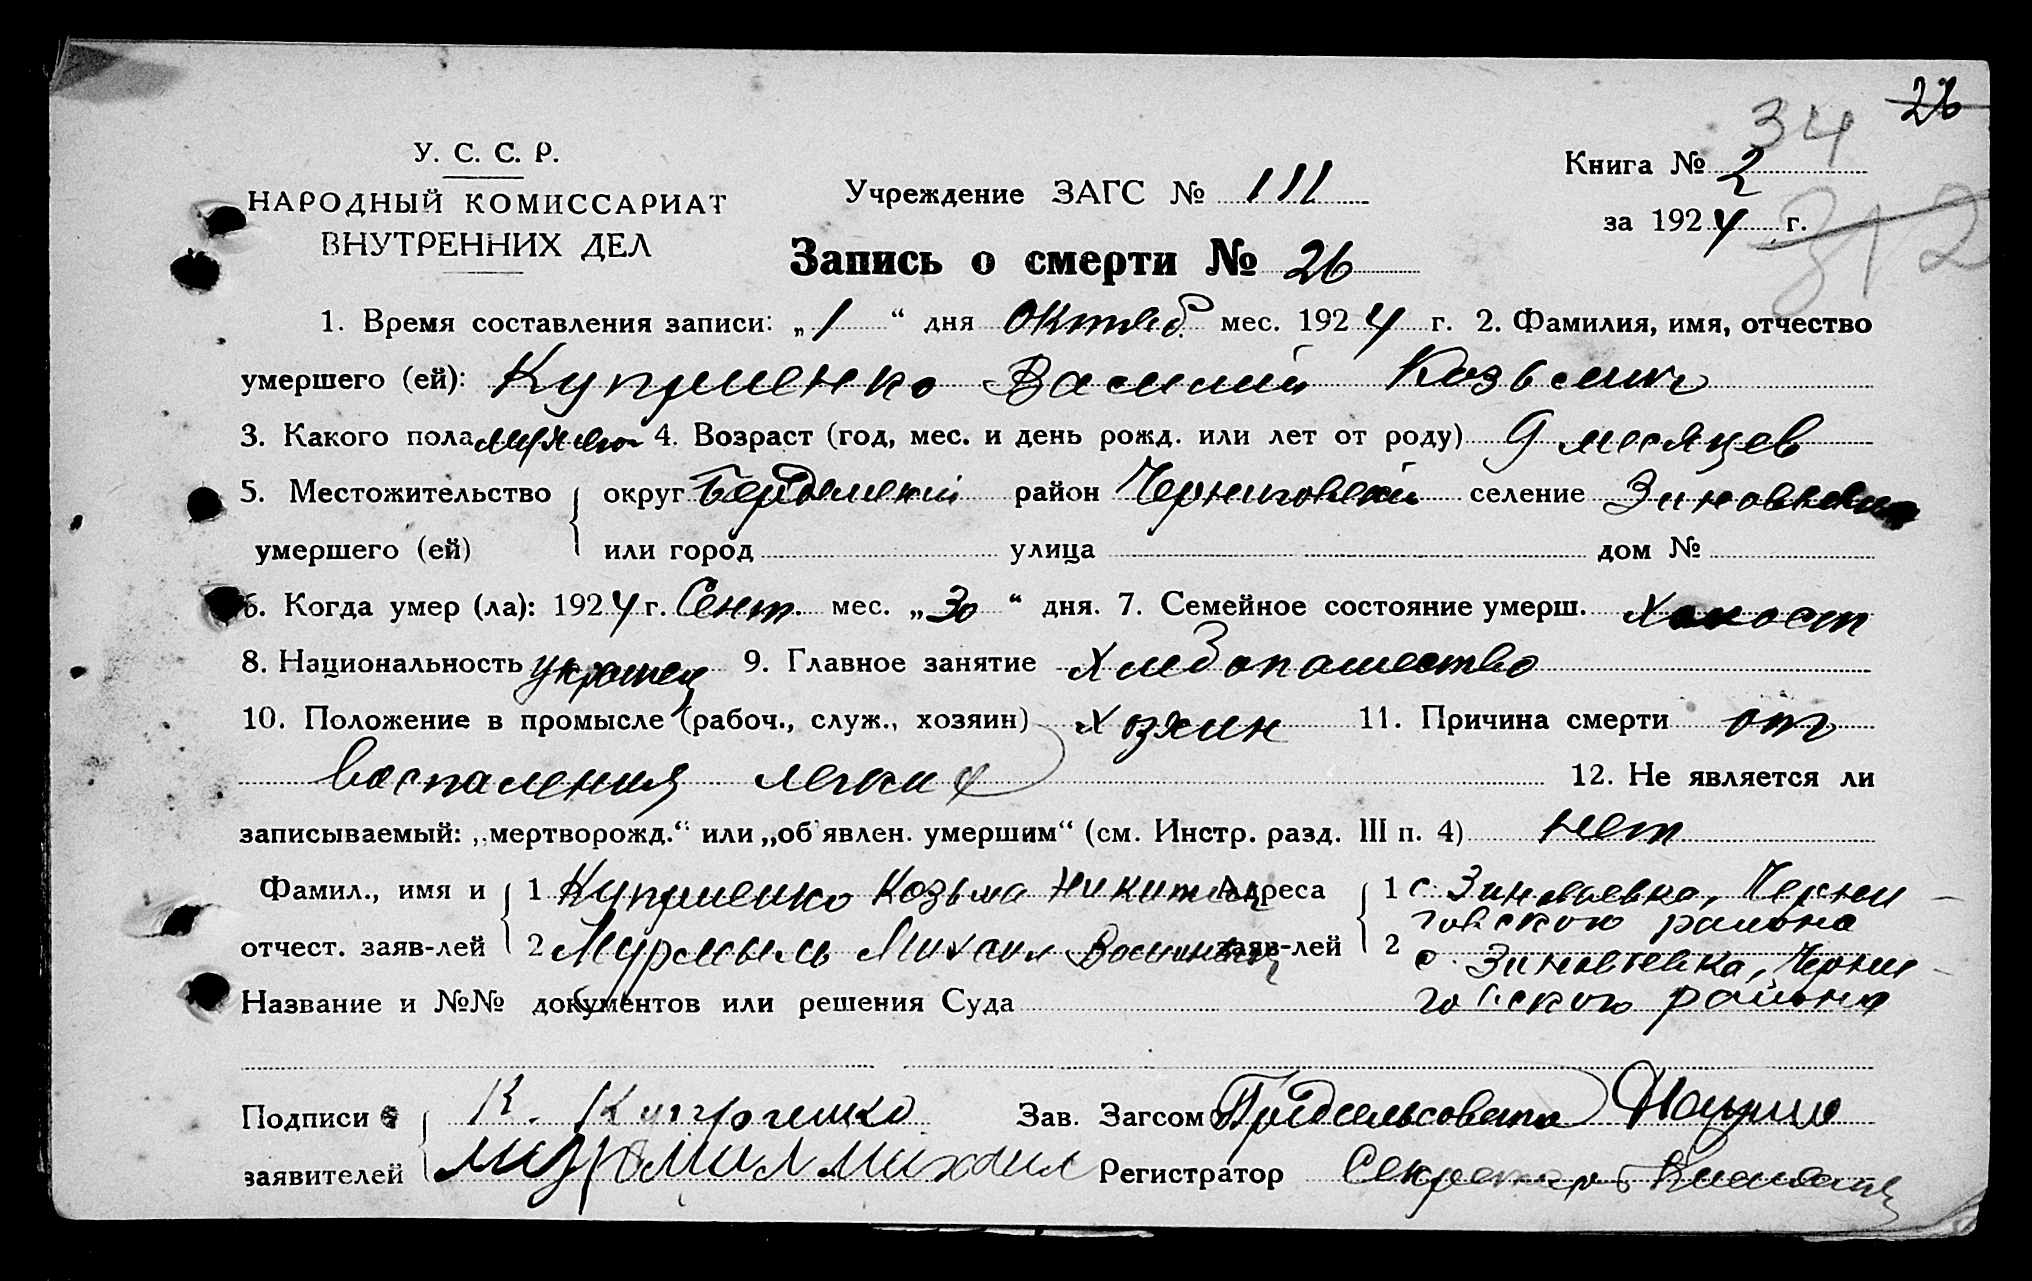 26
34
У. С. С. Р.
НАРОДНЫЙ КОМИССАРИАТ
ВНУТРЕННИХ ДЕЛ
Учреждение ЗАГС № 111
Книга № 2
за 1924 г.
312
Запись о смерти № 26
1. Время составления записи: „1“ дня Октяб. мес. 1924 г. 2. Фамилия, имя, отчество
умершего (ей): Куприенко Василий Козьмич
3. Какого пола 4. Возраст (год, мес. и день рожд. или лет от роду) 9 месяцев
5. Местожительство округ район Черниговский селение
умершего (ей) или город улица дом №
6. Когда умер (ла): 1924 г. Сент. мес. „30“ дня. 7. Семейное состояние умерш. холост
8. Национальность украинец 9. Главное занятие Хлебопашество
10. Положение в промысле (рабоч., служ., хозяин) хозяин 11. Причина смерти от
воспаления легких 12. Не является ли
записываемый: „мертворожд.“ или „об'явлен. умершим“ (см. Инстр. разд. III п. 4) нет
Фамил., имя и 1 Куприенко Козьма Никитич Адреса 1 с. Зиновьевка, Черни-
говского района
отчест. заяв-лей 2 Михаил заяв-лей 2 с. Зиновьевка, Черни-
говского района
Название и №№ документов или решения Суда
Подписи К. Куприенко Зав. Загсом Предсельсовета
заявителей Михаил Регистратор Секретарь